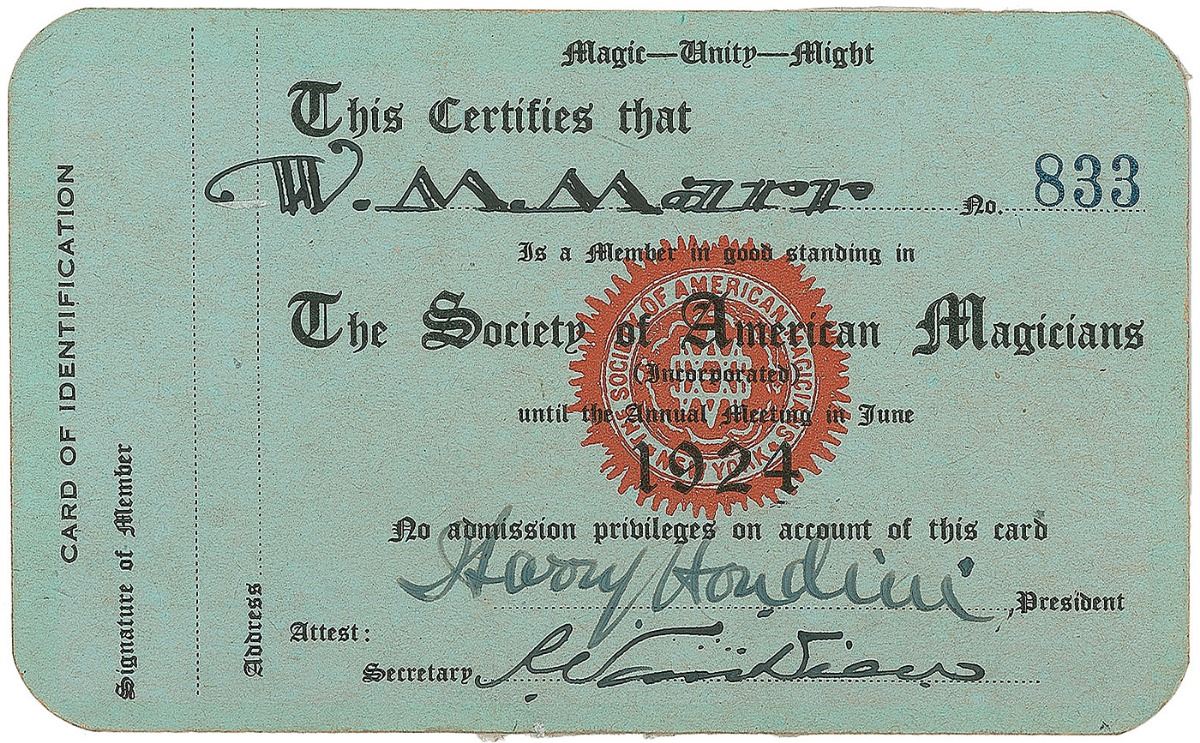 Magic—Unity—Might
This Certifies that
W. M. No. 833
Is a Member in good standing in
The Society of American Magicians
(Incorporated)
until the Annual Meeting in June
1924
No admission privileges on account of this card
Harry Houdini, President
Attest:
Secretary
SOCIETY OF AMERICAN MAGICIANS
NEW YORK
CARD OF IDENTIFICATION
Signature of Member
Address